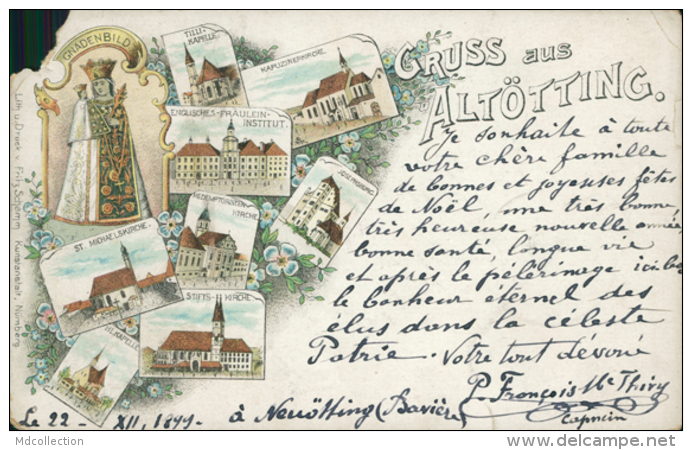 GNADENBILD
TILLI-
KAPELLE.
KAPUZINERKIRCHE.
GRUSS aus
ALTÖTTING.
ENGLISCHES-FRÄULEIN-
INSTITUT.
REDEMPTORISTEN-
KIRCHE
ST. MICHAELSKIRCHE.
STIFTS-KIRCHE
Lith. u. Druck v. Fritz Schramm Kunstanstalt, Nürnberg
Je souhaite à toute
votre chère famille
de bonnes et joyeuses fêtes
de Noël, une très bonne,
très heureuse nouvelle année,
bonne santé, longue vie
et après le pèlerinage ici-bas
le bonheur éternel des
élus dans la céleste
Patrie. Votre tout dévoué
P. François M. Thiry
Capucin
Le 22 - XII, 1899 - à Neuötting (Bavière)
Mdcollection
www.delcampe.net